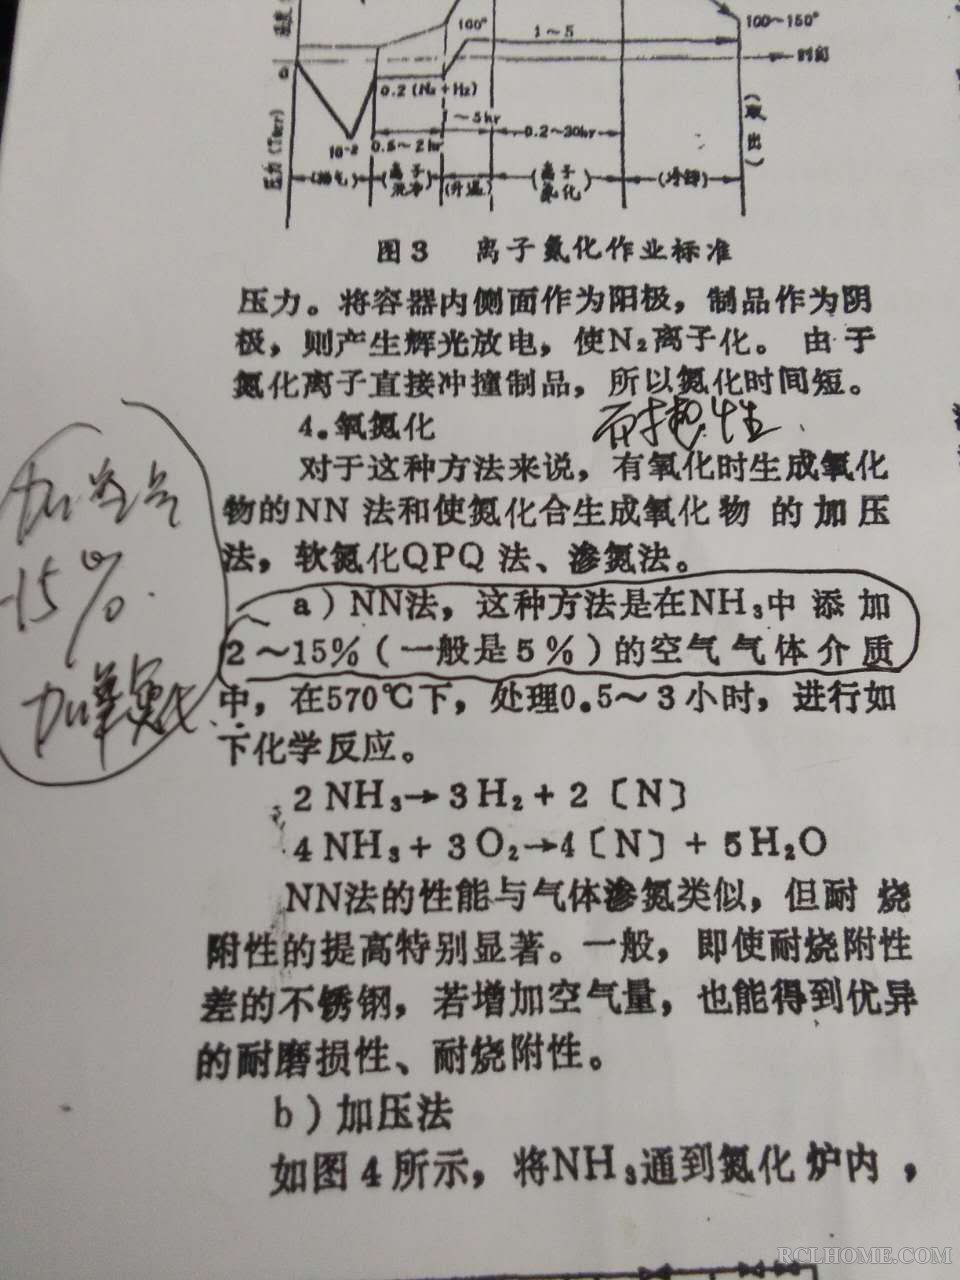 100~150°
160°
1~5
时间
0
0.2 (N₂+H₂)
压力 (Torr)
10⁻²
0.5~2 hr
1~5hr
0.2~30hr
(取出)
(排气)
(离子洗净)
(升温)
(离子氮化)
(冷却)
图3 离子氮化作业标准
压力。将容器内侧面作为阳极，制品作为阴
极，则产生辉光放电，使N₂离子化。由于
氮化离子直接冲撞制品，所以氮化时间短。
4.氧氮化
对于这种方法来说，有氧化时生成氧化
物的NN法和使氮化合生成氧化物的加压
法，软氮化QPQ法、渗氮法。
加空气
15%
a）NN法，这种方法是在NH₃中添加
2～15%（一般是5%）的空气气体介质
中，在570℃下，处理0.5～3小时，进行如
下化学反应。
2NH₃→3H₂+2〔N〕
4NH₃+3O₂→4〔N〕+5H₂O
NN法的性能与气体渗氮类似，但耐烧
附性的提高特别显著。一般，即使耐烧附性
差的不锈钢，若增加空气量，也能得到优异
的耐磨损性、耐烧附性。
b）加压法
如图4所示，将NH₃通到氮化炉内，
RCLHOME.COM